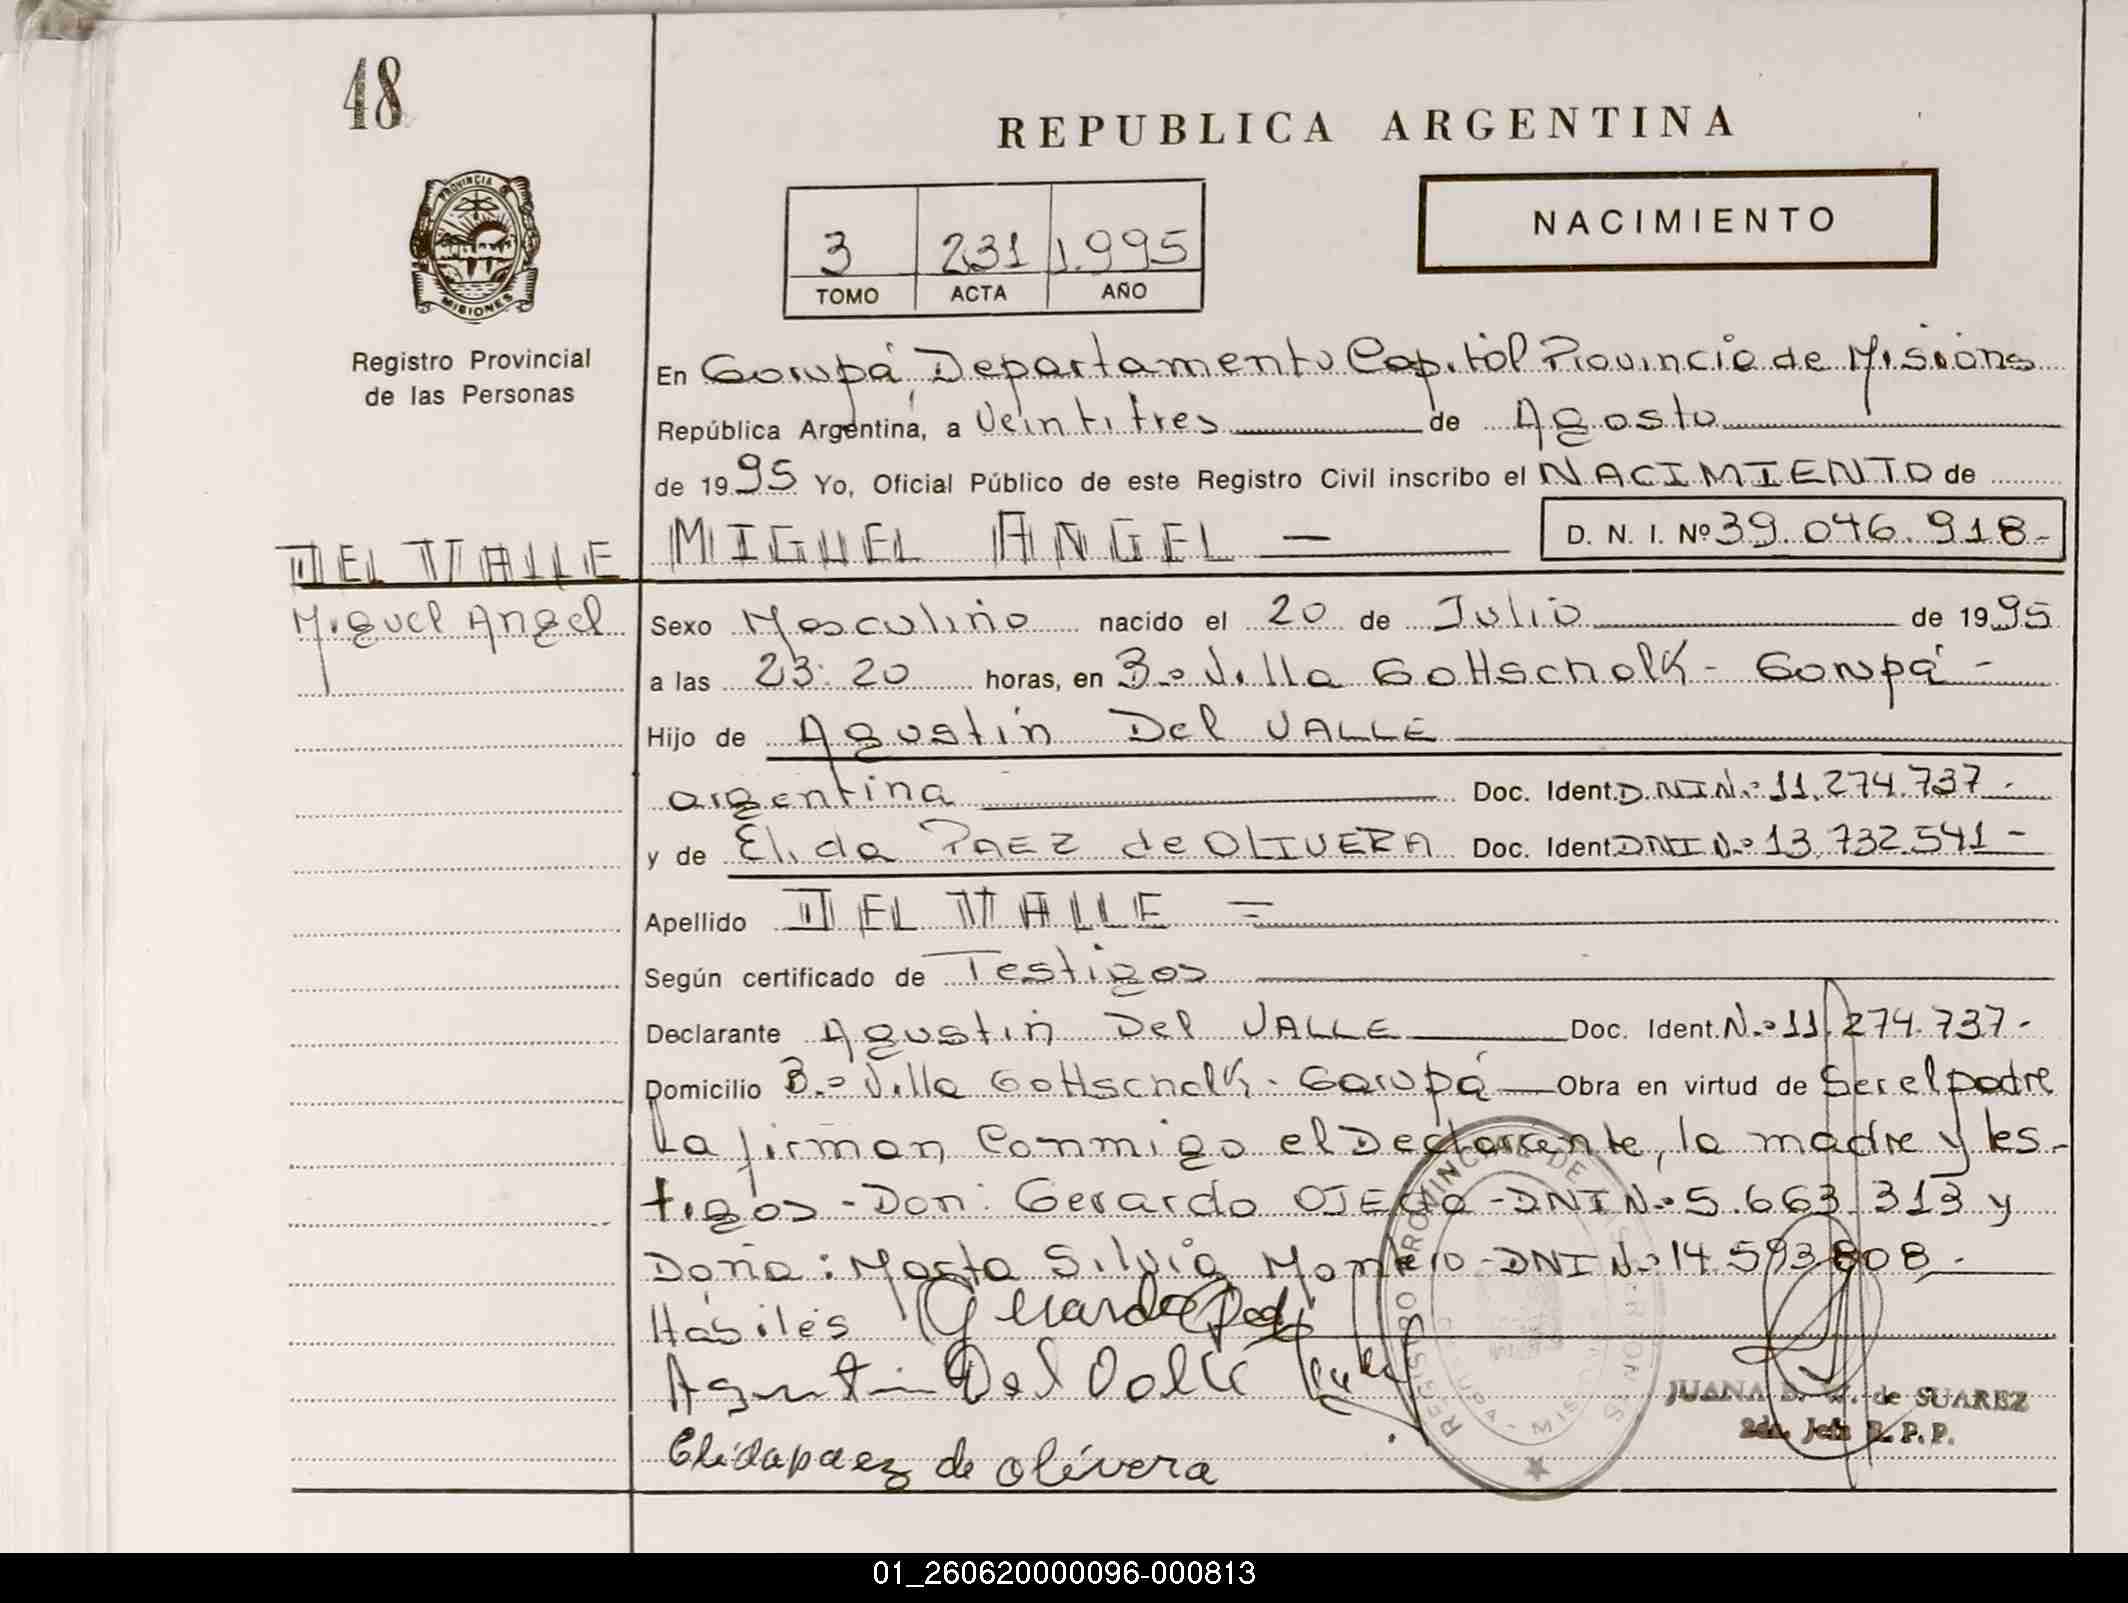 48
REPUBLICA ARGENTINA
PROVINCIA
MISIONES
NACIMIENTO
3 231 1.995
TOMO ACTA AÑO
Registro Provincial
de las Personas
En Garupá, Departamento Capital Provincia de Misiones
República Argentina, a Veintitres de Agosto
de 1995 Yo, Oficial Público de este Registro Civil inscribo el NACIMIENTO de
DEL VALLE MIGUEL ANGEL — D. N. I. Nº 39.046.918-
Miguel Angel Sexo Masculino nacido el 20 de Julio de 1995
a las 23:20 horas, en B.º Villa Gottschalk - Garupá -
Hijo de Agustín Del VALLE
argentina Doc. Ident. DNI N.º 11.274.737-
y de Elida PAEZ de OLIVERA Doc. Ident. DNI N.º 13.732.541-
Apellido DEL VALLE =
Según certificado de Testigos
Declarante Agustin Del VALLE Doc. Ident. N.º 11.274.737-
Domicilio B.º Villa Gottschalk - Garupá Obra en virtud de Ser el padre
La firman conmigo el Declarante, la madre y tes-
tigos - Don: Gerardo OJEda - DNI N.º 5.663.313 y
Doña: Marta Silvia Montero - DNI N.º 14.593.808.-
Hábiles Gerardo
Agustin Del Valle
JUANA de SUAREZ
2da. Jefa R. P. P.
Elida paez de olivera
REGISTRO PROVINCIAL DE
01_260620000096-000813